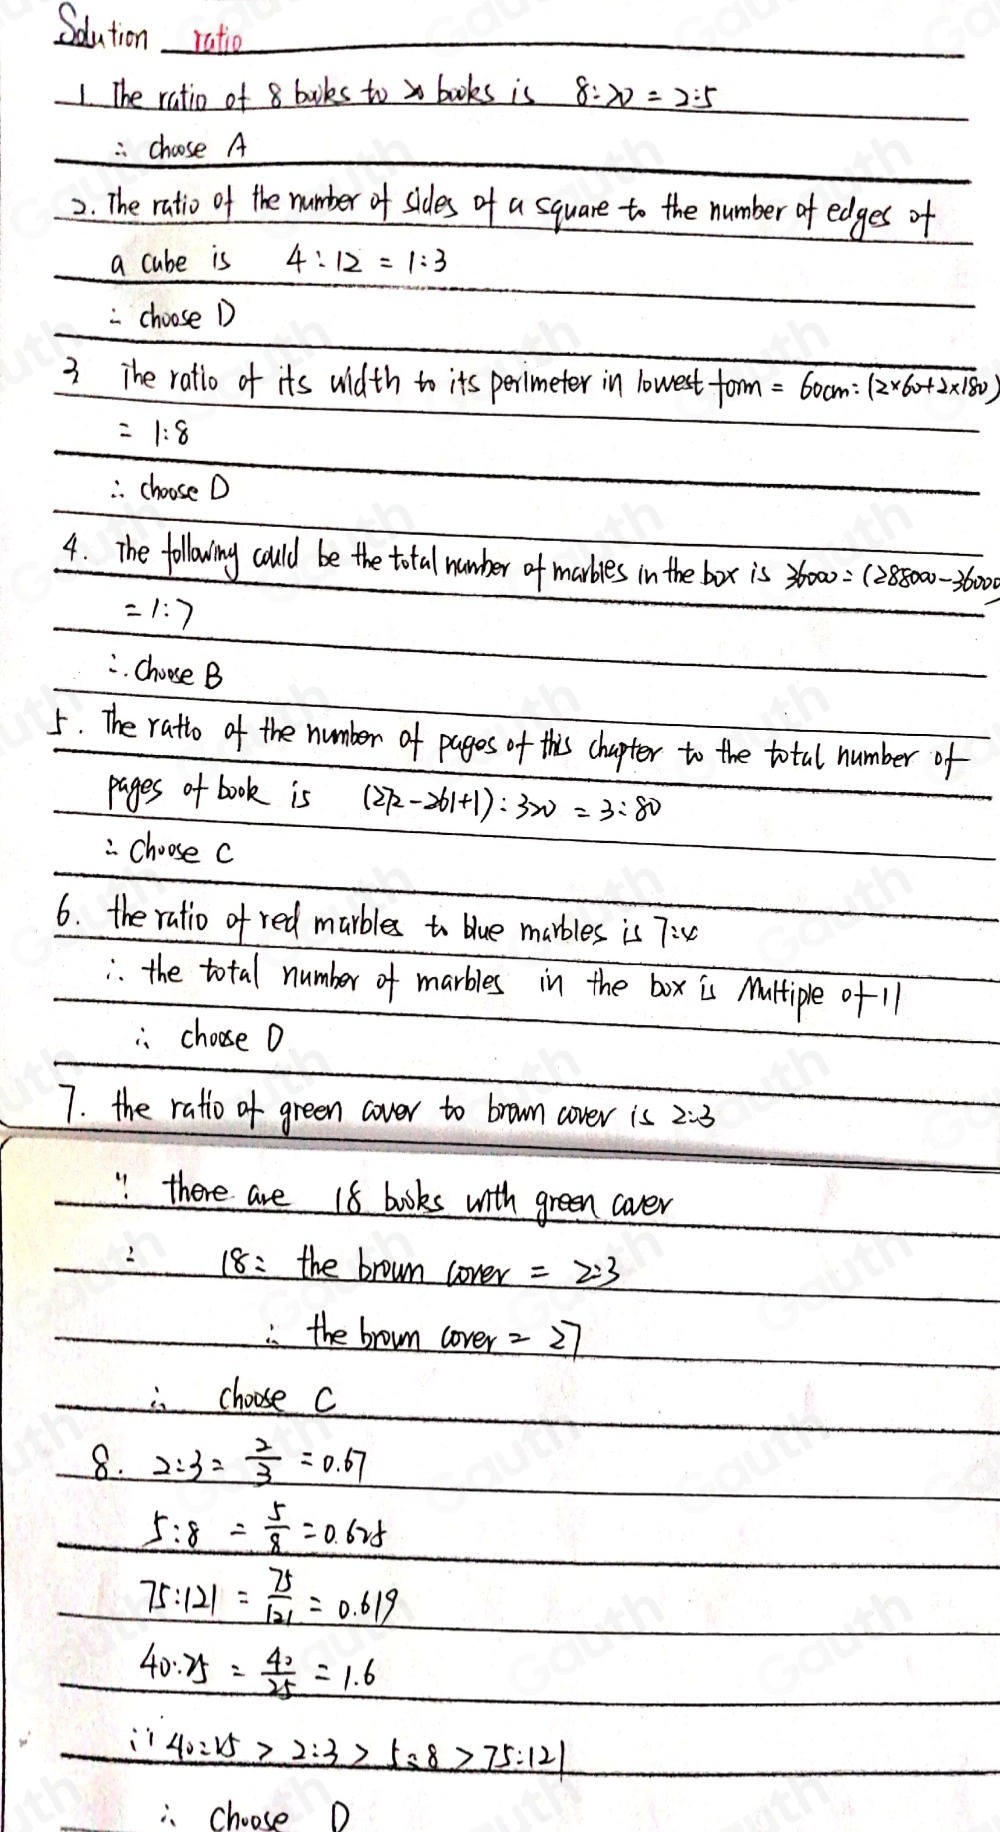 Solution ratio
1 The ratio of 8 books to 20 books is 8:20 = 2:5
∴ choose A
2. The ratio of the number of sides of a square to the number of edges of
a cube is 4:12 = 1:3
∴ choose D
3 The ratio of its width to its perimeter in lowest form = 60cm:(2×60+2×180)
= 1:8
∴ choose D
4. The following could be the total number of marbles in the box is 36000:(288000-36000)
= 1:7
∴ choose B
5. The ratio of the number of pages of this chapter to the total number of
pages of book is (272-261+1):320 = 3:80
∴ choose C
6. the ratio of red marbles to blue marbles is 7:4
∴ the total number of marbles in the box is Multiple of 11
∴ choose D
7. the ratio of green cover to brown cover is 2:3
∵ there are 18 books with green cover
∴ 18: the brown cover = 2:3
∴ the brown cover = 27
∴ choose C
8. 2:3 = 2/3 = 0.67
5:8 = 5/8 = 0.625
75:121 = 75/121 = 0.619
40:25 = 40/25 = 1.6
∵ 40:25 > 2:3 > 5:8 > 75:121
∴ choose D